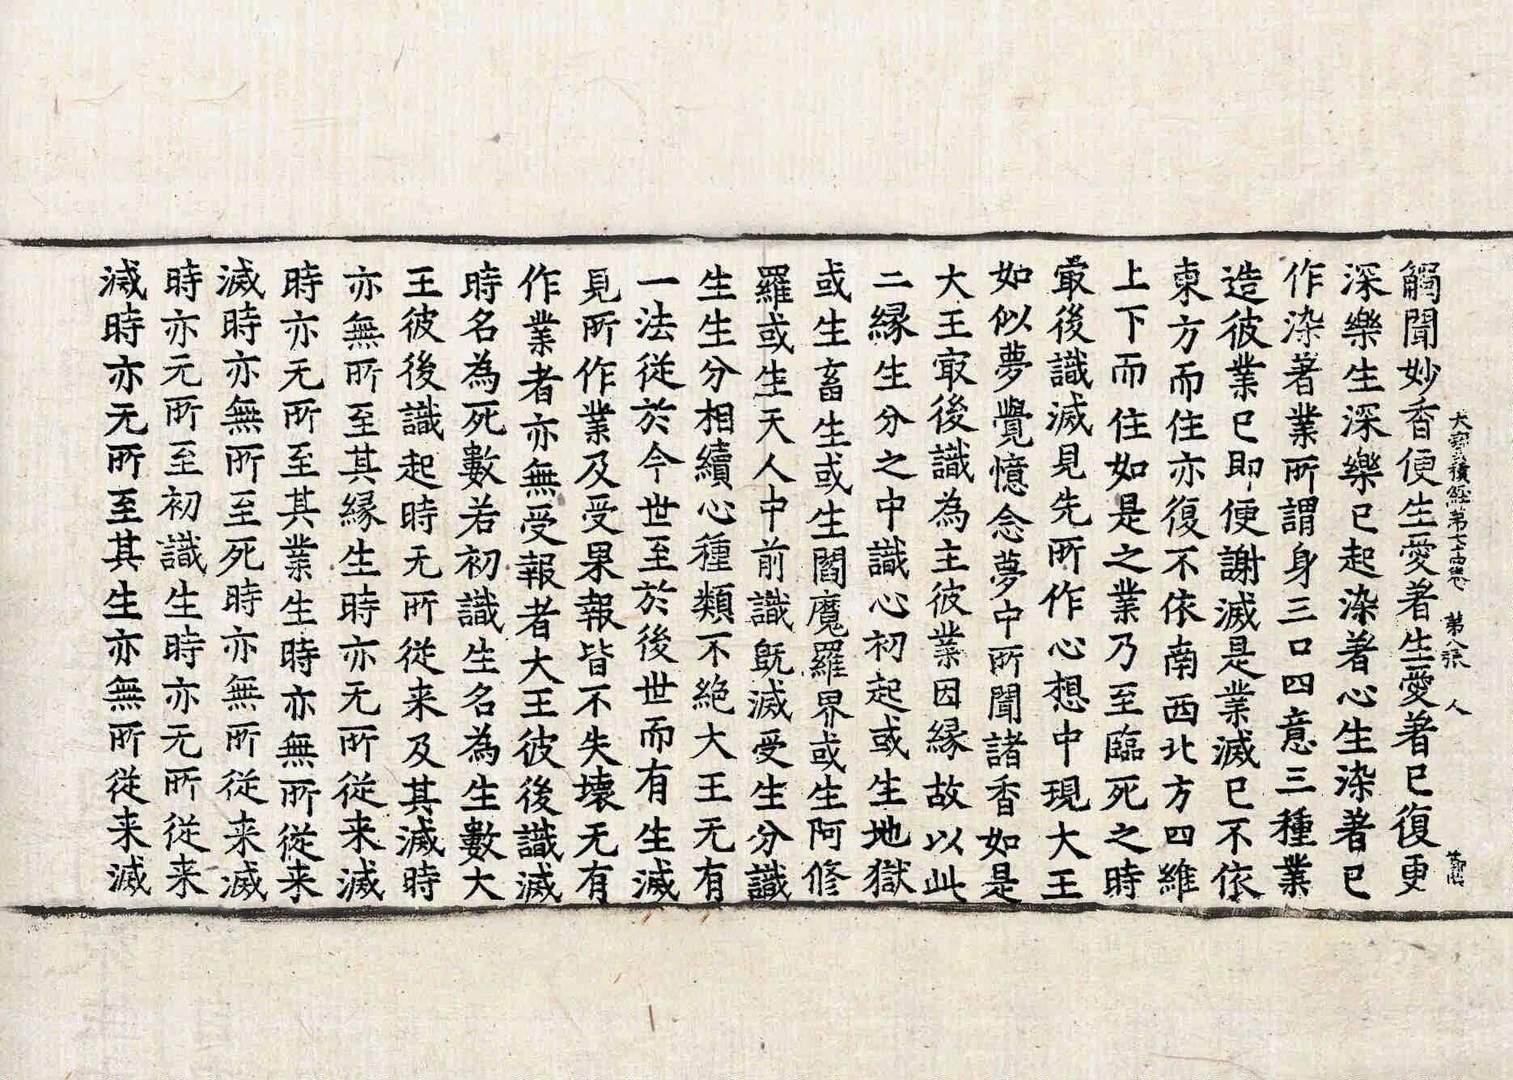 大寶積經第七十四卷　第八張　人
觸聞妙香便生愛著生愛著已復更
深樂生深樂已起染著心生染著已
作染著業所謂身三口四意三種業
造彼業已即便謝滅是業滅已不依
東方而住亦復不依南西北方四維
上下而住如是之業乃至臨死之時
㝡後識滅見先所作心想中現大王
如似夢覺憶念夢中所聞諸香如是
大王㝡後識為主彼業因緣故以此
二緣生分之中識心初起或生地獄
或生畜生或生閻魔羅界或生阿修
羅或生天人中前識既滅受生分識
生生分相續心種類不絕大王无有
一法從於今世至於後世而有生滅
見所作業及受果報皆不失壞无有
作業者亦無受報者大王彼後識滅
時名為死數若初識生名為生數大
王彼後識起時无所從来及其滅時
亦無所至其緣生時亦无所從来滅
時亦无所至其業生時亦無所從来
滅時亦無所至死時亦無所從来滅
時亦元所至初識生時亦元所從来
滅時亦元所至其生亦無所從来滅